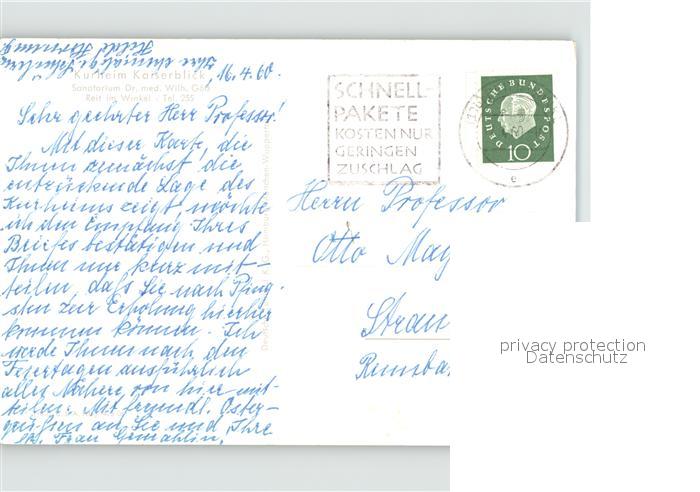 Ihre ehemalige Schülerin
Hilde Hornung
Kurheim Kaiserblick
Sanatorium Dr. med. Wilh. Göß
Reit im Winkel · Tel. 255
16.4.60.
Sehr geehrter Herr Professor!
Mit dieser Karte, die
Ihnen zunächst die
entzückende Lage des
Kurheims zeigt, möchte
ich den Empfang Ihres
Briefes bestätigen und
Ihnen nur kurz mit-
teilen, daß Sie nach Pfing-
sten zur Erholung hierher
kommen können. Ich
werde Ihnen nach den
Feiertagen ausführlich
alles Nähere von hier mit-
teilen. Mit freundl. Oster-
grüßen an Sie und Ihre
Frau Gemahlin,
SCHNELL-
PAKETE
KOSTEN NUR
GERINGEN
ZUSCHLAG
DEUTSCHE BUNDESPOST
10
e
Herrn Professor
Otto May
Strau
Remsba
privacy protection
Datenschutz